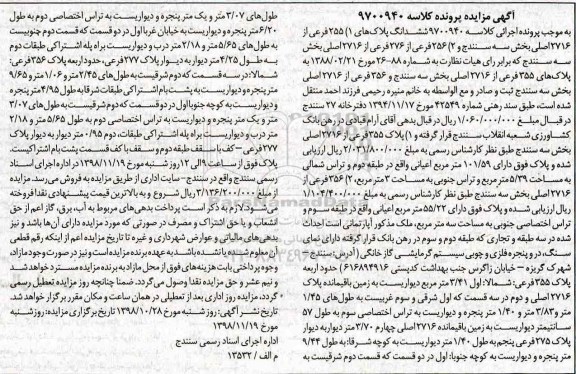 آگهی مزایده پرونده کلاسه ۹۷۰۰۹۴۰
به موجب پرونده اجرائی کلاسه ۹۷۰۰۹۴۰ ششدانگ پلاک‌های ۱) ۲۵۵ فرعی از
۲۷۱۶ اصلی بخش سه سنندج و ۲) ۲۵۶ فرعی از ۲۷۶ فرعی از ۲۷۱۶ اصلی بخش
سه سنندج که برابر رای هیات نظارت به شماره ۸۸-۲۶ مورخ ۱۳۸۸/۰۲/۲۱ به
پلاک‌های ۳۵۵ فرعی از ۲۷۱۶ اصلی بخش سه سنندج و ۳۵۶ فرعی از ۲۷۱۶ اصلی
بخش سه سنندج ثبت و صادر و مع الواسطه به خانم منیره رحیمی فرزند احمد منتقل
شده است، طبق سند رهنی شماره ۴۲۵۴۹ مورخ ۱۳۹۴/۱۱/۱۷ دفترخانه ۲۷ سنندج
در قبال مبلغ ۱/۰۶۰/۰۰۰/۰۰۰ ریال در قبال بدهی آقای آرام قیادی در رهن بانک
کشاورزی شعبه انقلاب سنندج قرار گرفته و ۱) پلاک ۳۵۵ فرعی از ۲۷۱۶ اصلی
بخش سه سنندج طبق نظر کارشناس رسمی به مبلغ ۲/۰۳۱/۸۰۰/۰۰۰ ریال ارزیابی
شده و پلاک فوق دارای ۱۰۱/۵۹ متر مربع اعیانی واقع در طبقه دوم و تراس شمالی
به مساحت ۵/۳۹ متر مربع و تراس جنوبی به مساحت ۳ متر مربع، ۲) ۳۵۶ فرعی از
۲۷۱۶ اصلی بخش سه سنندج طبق نظر کارشناس رسمی به مبلغ ۱/۱۰۴/۴۰۰/۰۰۰
ریال ارزیابی شده و پلاک فوق دارای ۵۵/۲۲ متر مربع اعیانی واقع در طبقه سوم و
تراس اختصاصی جنوبی به مساحت سه متر مربع، ملک مذکور آپارتمانی است احداث
شده در سه طبقه و تجاری که طبقه دوم و سوم در رهن بانک قرار گرفته دارای نمای
سنگ، در و پنجره فلزی و چوبی سیستم گرمایشی گاز خانگی (آدرس: سنندج
شهرک گریزه – خیابان زاگرس جنب بهداشت کدپستی ۶۱۶۸۹۴۹۱۶) حدود اربعه
پلاک ۳۵۵ فرعی: شمالا: اول ۳/۴۱ متر مربع دیواریست به زمین باقیمانده پلاک
۲۷۱۶ اصلی و دوم در سه قسمت که اول شرقی و سوم غربیست به طول‌های ۱/۴۵
متر و ۳/۸۳ متر و ۱/۴۰ متر پنجره و دیواریست به تراس اختصاصی سوم به طول ۵۷
سانتیمتر دیواریست به زمین باقیمانده ۲۷۱۶ اصلی چهارم ۳/۷۰ متر دیوار به دیوار
پلاک ۲۷۵ فرعی پنجم به طول ۱/۴۰ متر دیواریست به کوچه شرقا: به طول ۹/۴۴
متر پنجره و دیواریست به کوچه جنوبا: اول در دو قسمت که قسمت دوم شرقیست به
طول‌های ۳/۰۷ متر و یک متر پنجره و دیواریست به تراس اختصاصی دوم به طول
۶/۲۰ متر پنجره و دیواریست به خیابان غربا اول در دو قسمت که قسمت دوم جنوبیست
به طول‌های ۵/۶۵ متر و ۲/۱۸ متر درب و دیواریست به راه پله اشتراکی طبقات دوم
به طول ۴/۲۵ متر دیوار به دیوار پلاک ۲۷۷ فرعی، حدود اربعه پلاک ۳۵۶ فرعی:
شمالا: در سه قسمت که دوم شرقیست به طول‌های ۲/۴۵ متر و ۱/۰۶ متر و ۹/۶۵
متر پنجره و دیواریست به پشت بام اشتراکی طبقات شرقا به طول ۴/۹۵ متر پنجره
و دیواریست به کوچه جنوبا اول در دو قسمت که دوم شرقیست به طول‌های ۳/۰۷
متر و یک متر پنجره و دیواریست به تراس اختصاصی دوم به طول ۵/۶۵ متر و ۲/۱۸
متر درب و دیواریست براه پله اشتراکی طبقات، دوم ۰/۹۵ متر دیوار به دیوار پلاک
۲۷۷ فرعی – کف با سقف طبقه دوم و سقف با کف قسمت پشت بام اشتراکیست.
پلاک فوق از ساعت ۹ الی ۱۲ روز شنبه مورخ ۱۳۹۸/۱۱/۱۹ در اداره اجرای اسناد
رسمی سنندج واقع در سنندج- سایت اداری از طریق مزایده به فروش می‌رسد. مزایده
از مبلغ ۳/۱۳۶/۲۰۰/۰۰۰ ریال شروع و به بالاترین قیمت پیشنهادی نقدا فروخته
می‌شود. لازم به ذکر است پرداخت بدهی‌های مربوط به آب، برق، گاز اعم از حق
انشعاب و یا حق اشتراک و مصرف در صورتی که مورد مزایده دارای آن‌ها باشد و نیز
بدهی‌های مالیاتی و عوارض شهرداری و غیره تا تاریخ مزایده اعم از اینکه رقم قطعی
آن معلوم شده یا نشده باشد به عهده برنده مزایده است و نیز در صورت وجود مازاد
وجوه پرداختی بابت هزینه‌های فوق از محل مازاد به برنده مزایده مسترد خواهد شد
و نیم عشر و حق مزایده نقدا وصول می‌گردد. ضمنا چنانچه روز مزایده تعطیل رسمی
گردد، مزایده روز اداری بعد از تعطیلی در همان ساعت و مکان مقرر برگزار خواهد شد.
تاریخ نشر آگهی: روز شنبه مورخ ۱۳۹۸/۱۰/۲۸ تاریخ برگزاری مزایده: روز شنبه
مورخ ۱۳۹۸/۱۱/۱۹
اداره اجرای اسناد رسمی سنندج
م الف / ۱۳۵۳۲